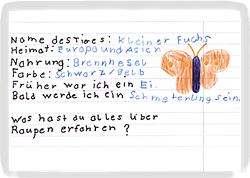 Name des Tieres: kleiner Fuchs
Heimat: Europa und Asien
Nahrung: Brennnesel
Farbe: Schwarz/gelb
Früher war ich ein Ei.
Bald werde ich ein Schmetterling sein.
Was hast du alles über
Raupen erfahren?